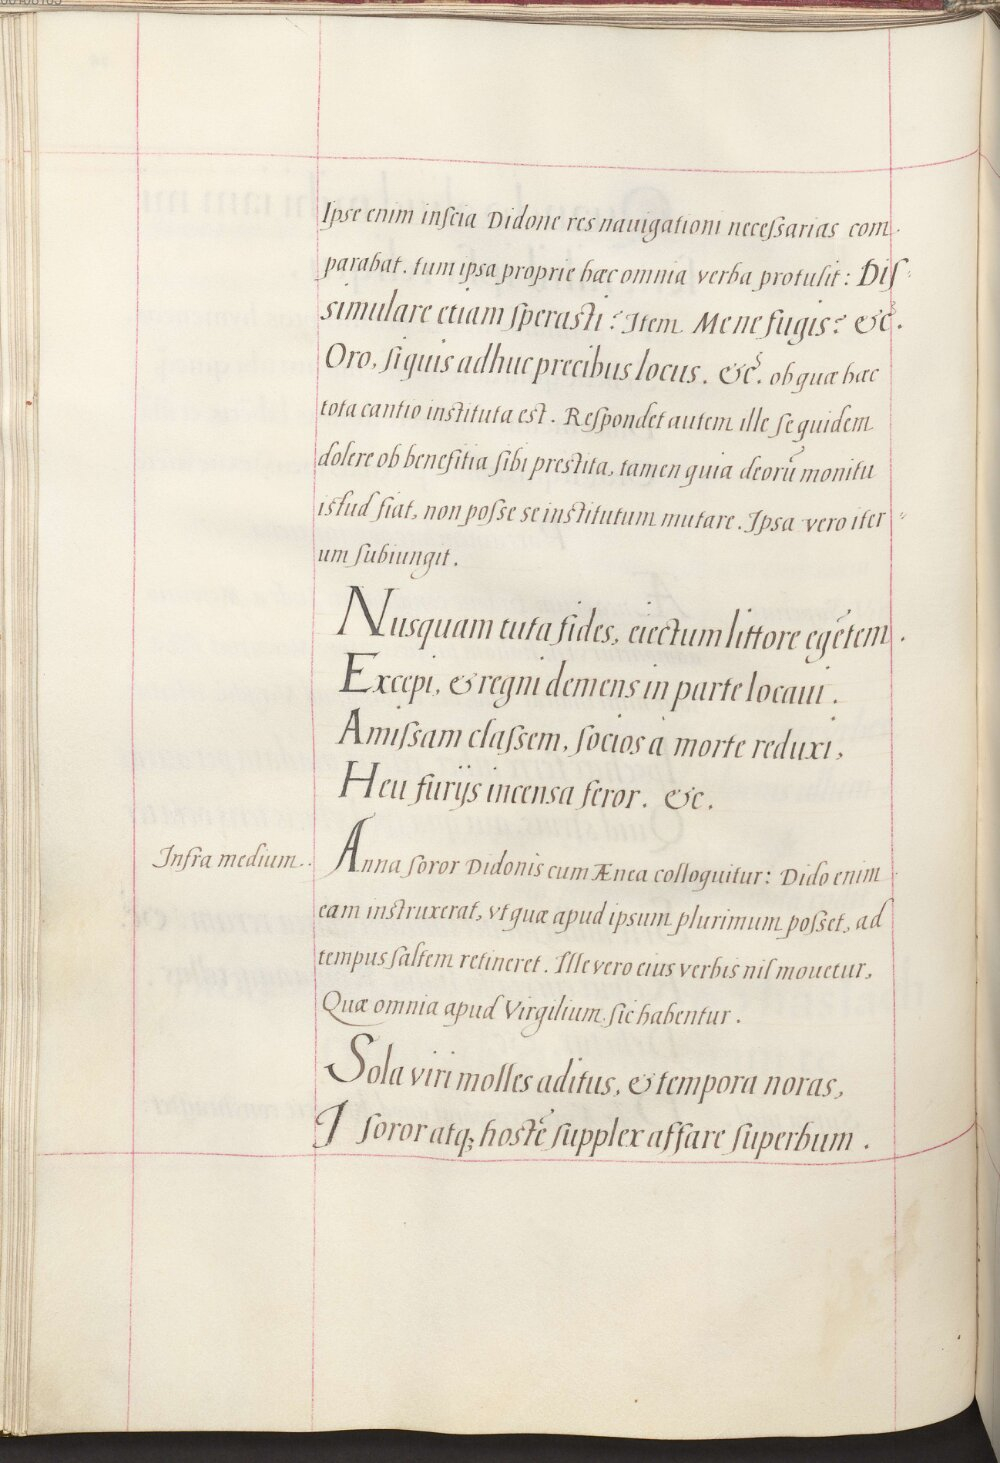 Ipse enim inſcia Didone res nauigationi neceſsarias com-
parabat. tum ipsa proprie hæc omnia verba protulit: Diſ=
simulare etiam ſperasti? Item Mene fugis? &c.
Oro, ſi quis adhuc precibus locus. &c. ob quæ hæc
tota cantio instituta est. Reſpondet autem ille ſe quidem
dolere ob benefitia ſibi prestita, tamen quia deorū monitu
istud fiat, non poſse se institutum mutare. Ipsa vero iter=
um ſubiungit.
Nusquam tuta fides, eiectum littore egētem.
Excepi, & regni demens in parte locaui.
Amiſsam claſsem, ſocios à morte reduxi,
Heu furijs incensa feror. &c.
Infra medium..
Anna ſoror Didonis cum Ænea colloquitur: Dido enim
eam instruxerat, vt quæ apud ipsum plurimum poſset, ad
tempus ſaltem retineret. Ille vero eius verbis nil mouetur,
Quæ omnia apud Virgilium ſic habentur.
Sola viri molles aditus, & tempora noras,
I ſoror atq; hostē ſupplex affare ſuperbum.